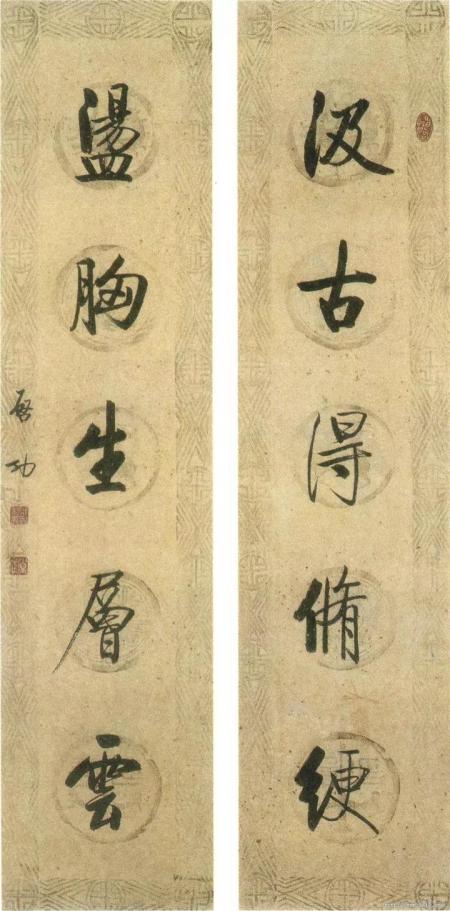 汲古得脩绠
盪胸生層雲
啓功